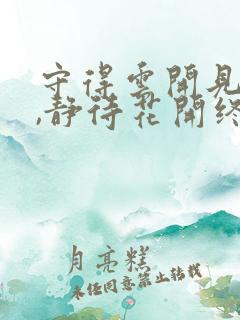 守得雲開見
,静待花開終
月亮糕
未经同意禁止转载